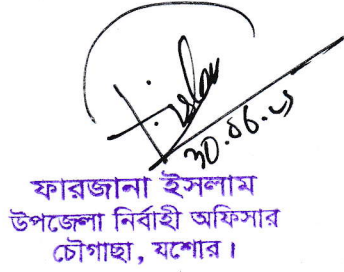 30.06.25
ফারজানা ইসলাম
উপজেলা নির্বাহী অফিসার
চৌগাছা, যশোর।